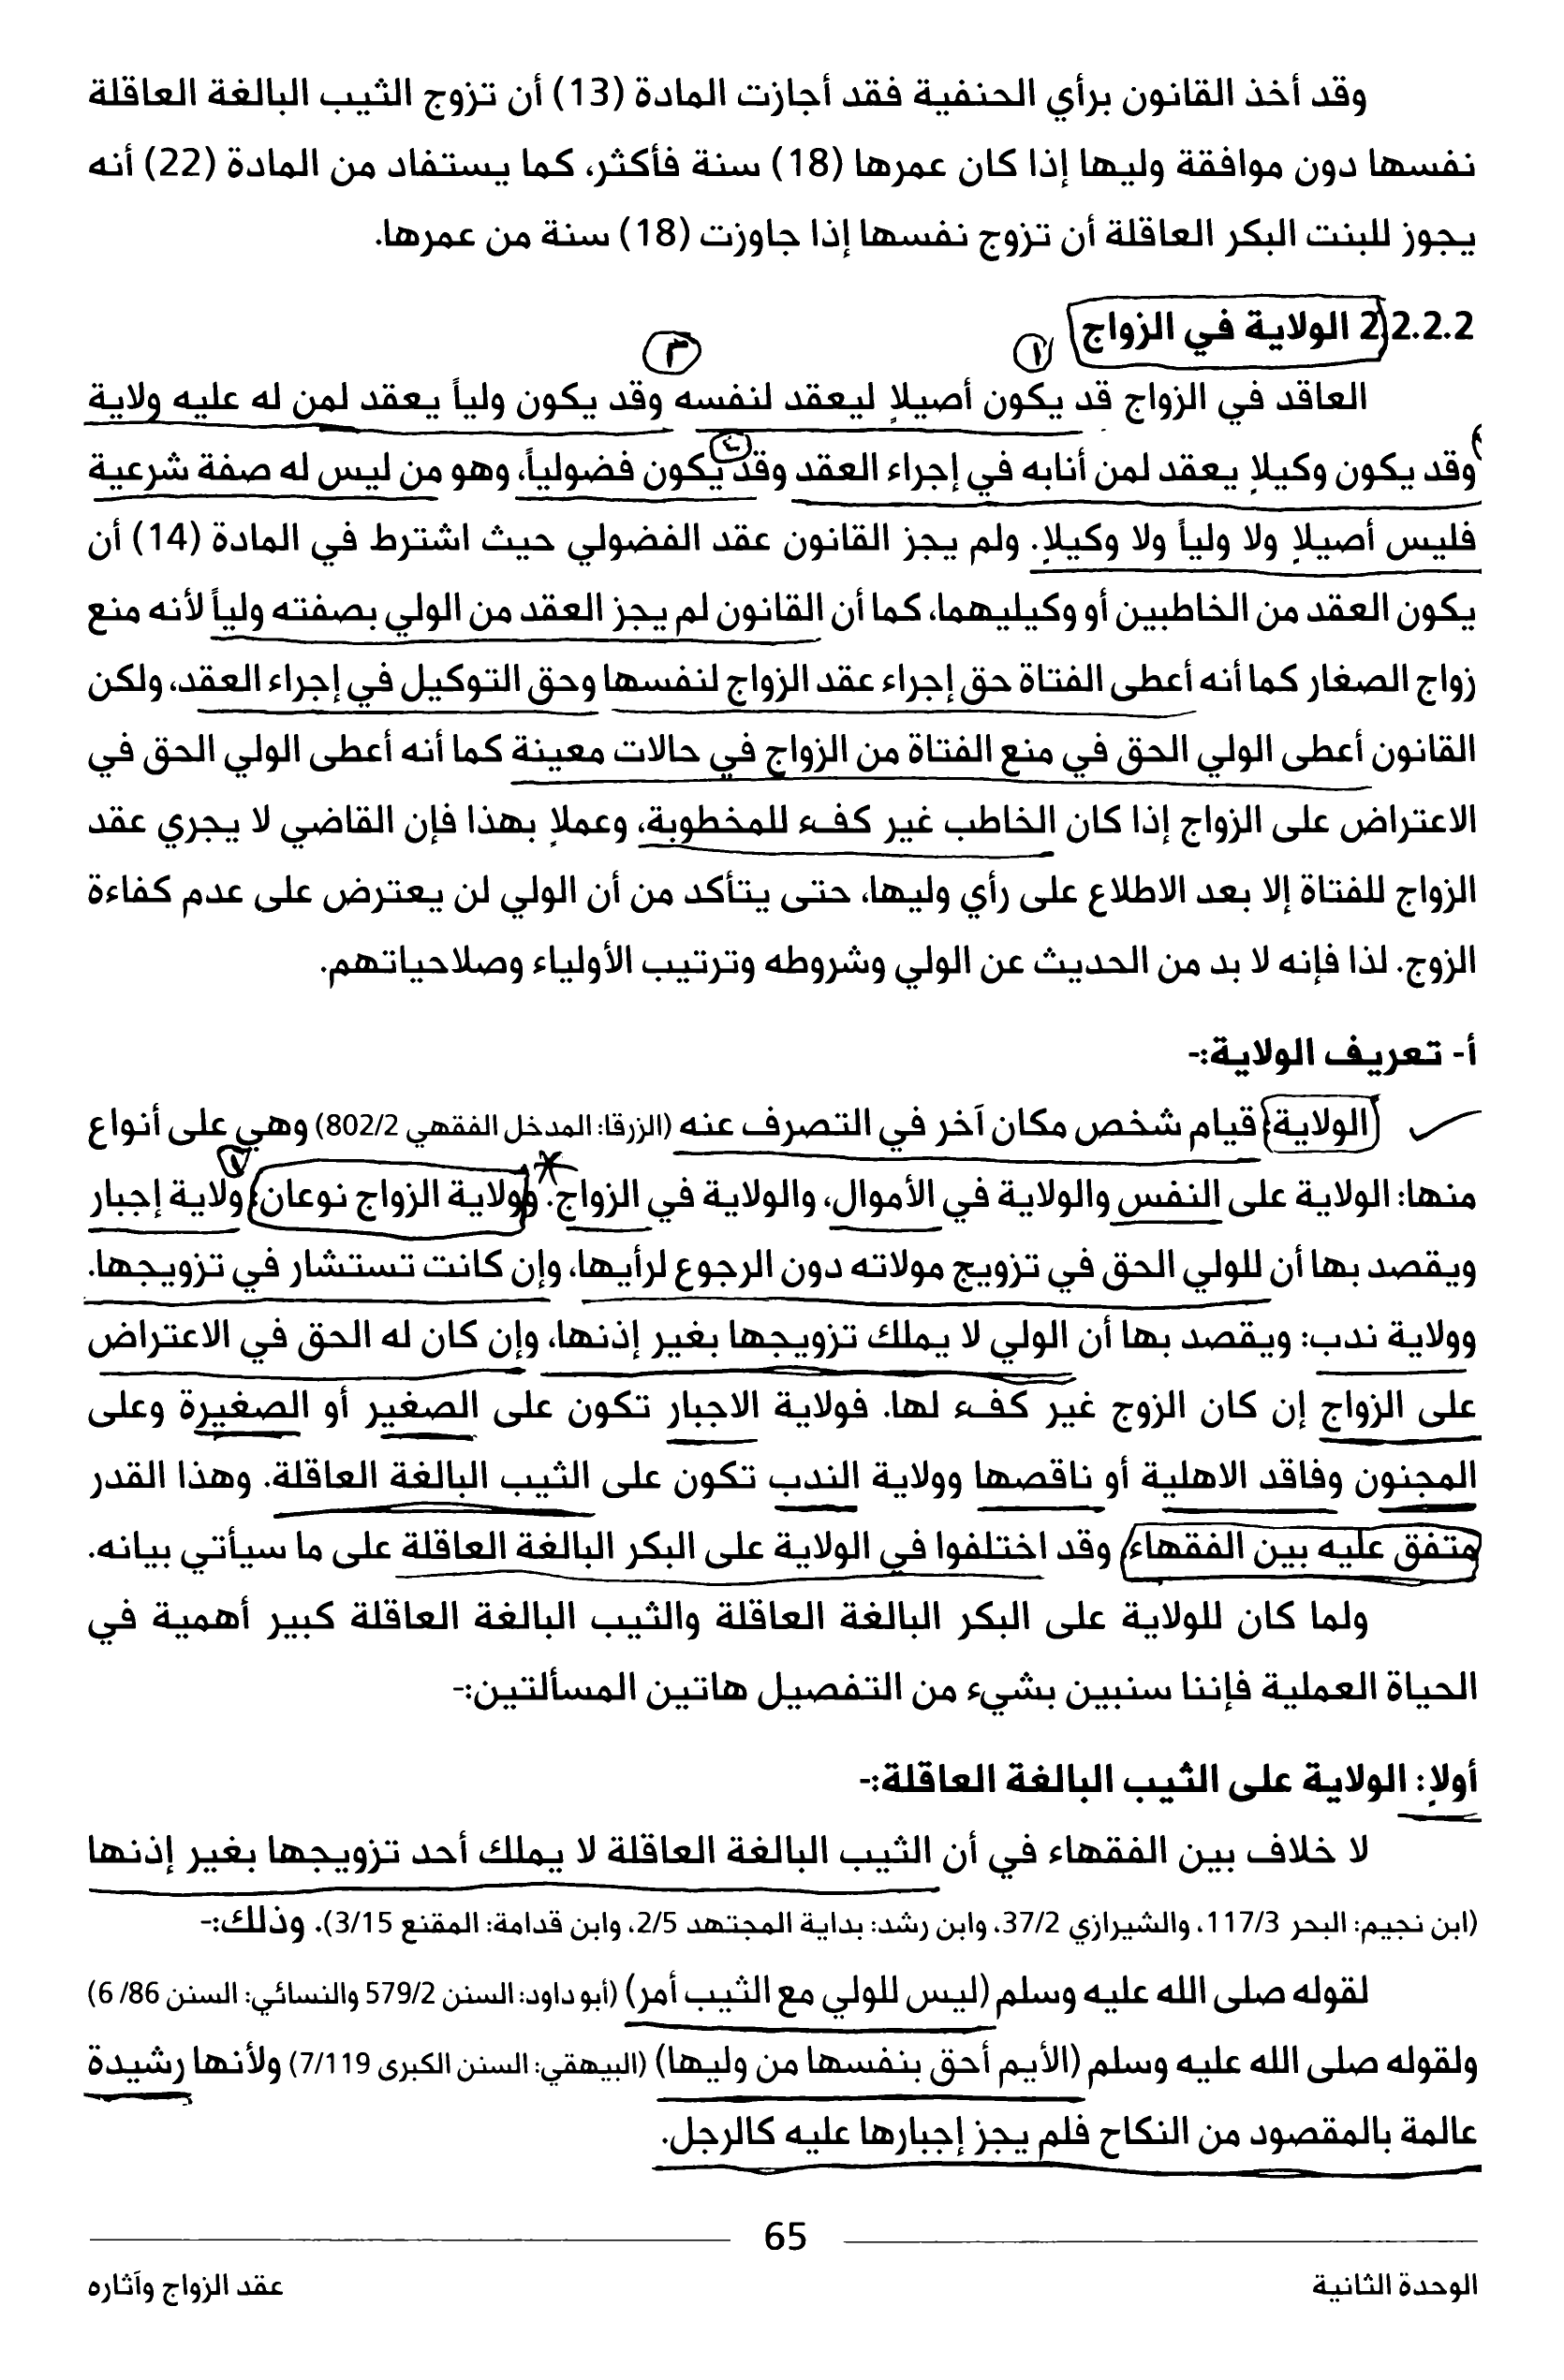 وقد أخذ القانون برأي الحنفية فقد أجازت المادة (13) أن تزوج الثيب البالغة العاقلة
نفسها دون موافقة وليها إذا كان عمرها (18) سنة فأكثر، كما يستفاد من المادة (22) أنه
يجوز للبنت البكر العاقلة أن تزوج نفسها إذا جاوزت (18) سنة من عمرها.
2.2.2.2 الولاية في الزواج
١ ٣
العاقد في الزواج قد يكون أصيلاً ليعقد لنفسه وقد يكون ولياً يعقد لمن له عليه ولاية
٤
وقد يكون وكيلاً يعقد لمن أنابه في إجراء العقد وقد يكون فضولياً، وهو من ليس له صفة شرعية
فليس أصيلاً ولا ولياً ولا وكيلاً. ولم يجز القانون عقد الفضولي حيث اشترط في المادة (14) أن
يكون العقد من الخاطبين أو وكيليهما، كما أن القانون لم يجز العقد من الولي بصفته ولياً لأنه منع
زواج الصغار كما أنه أعطى الفتاة حق إجراء عقد الزواج لنفسها وحق التوكيل في إجراء العقد، ولكن
القانون أعطى الولي الحق في منع الفتاة من الزواج في حالات معينة كما أنه أعطى الولي الحق في
الاعتراض على الزواج إذا كان الخاطب غير كفء للمخطوبة، وعملاً بهذا فإن القاضي لا يجري عقد
الزواج للفتاة إلا بعد الاطلاع على رأي وليها، حتى يتأكد من أن الولي لن يعترض على عدم كفاءة
الزوج. لذا فإنه لا بد من الحديث عن الولي وشروطه وترتيب الأولياء وصلاحياتهم.
أ- تعريف الولاية:-
الولاية: قيام شخص مكان آخر في التصرف عنه (الزرقا: المدخل الفقهي 802/2) وهي على أنواع
١
منها: الولاية على النفس والولاية في الأموال، والولاية في الزواج. وولاية الزواج نوعان: ولاية إجبار
ويقصد بها أن للولي الحق في تزويج مولاته دون الرجوع لرأيها، وإن كانت تستشار في تزويجها.
وولاية ندب: ويقصد بها أن الولي لا يملك تزويجها بغير إذنها، وإن كان له الحق في الاعتراض
على الزواج إن كان الزوج غير كفء لها. فولاية الاجبار تكون على الصغير أو الصغيرة وعلى
المجنون وفاقد الاهلية أو ناقصها وولاية الندب تكون على الثيب البالغة العاقلة. وهذا القدر
متفق عليه بين الفقهاء، وقد اختلفوا في الولاية على البكر البالغة العاقلة على ما سيأتي بيانه.
ولما كان للولاية على البكر البالغة العاقلة والثيب البالغة العاقلة كبير أهمية في
الحياة العملية فإننا سنبين بشيء من التفصيل هاتين المسألتين:-
أولاً: الولاية على الثيب البالغة العاقلة:-
لا خلاف بين الفقهاء في أن الثيب البالغة العاقلة لا يملك أحد تزويجها بغير إذنها
(ابن نجيم: البحر 117/3، والشيرازي 37/2، وابن رشد: بداية المجتهد 2/5، وابن قدامة: المقنع 3/15). وذلك:-
لقوله صلى الله عليه وسلم (ليس للولي مع الثيب أمر) (أبو داود: السنن 579/2 والنسائي: السنن 86/ 6)
ولقوله صلى الله عليه وسلم (الأيم أحق بنفسها من وليها) (البيهقي: السنن الكبرى 7/119) ولأنها رشيدة
عالمة بالمقصود من النكاح فلم يجز إجبارها عليه كالرجل.
65
الوحدة الثانية
عقد الزواج وآثاره